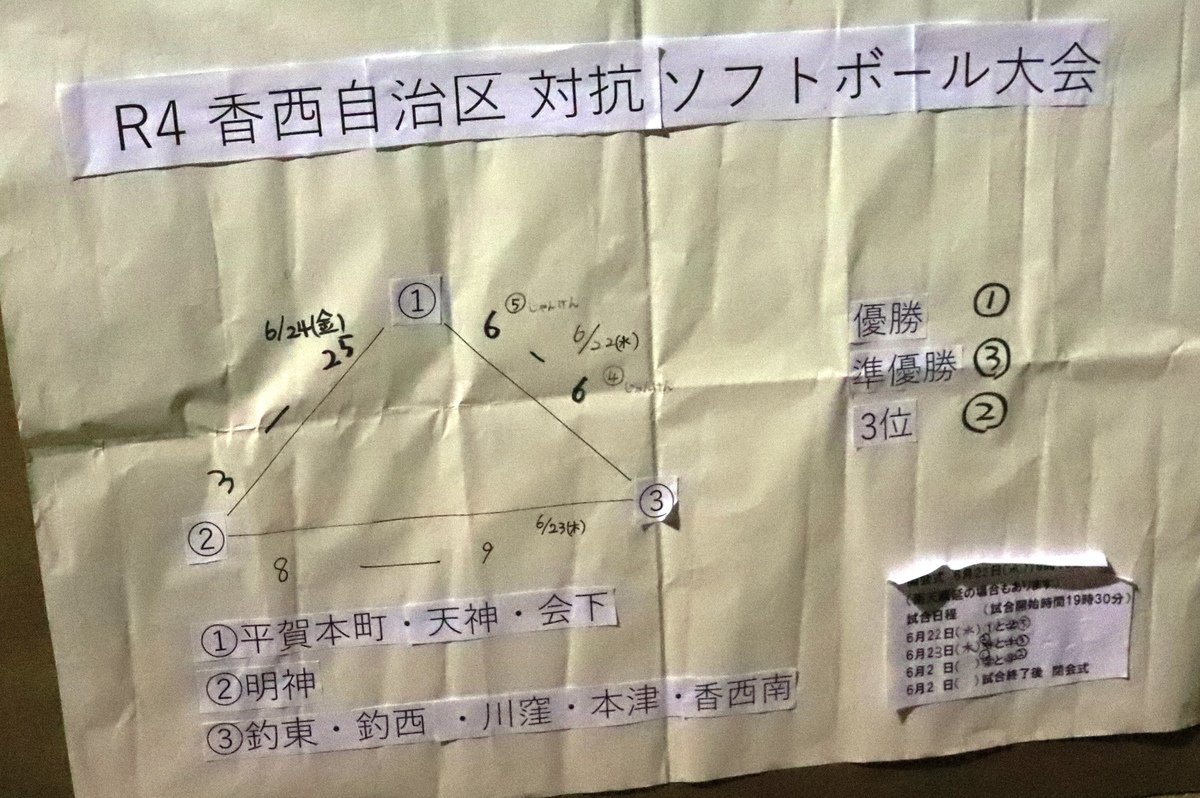 R4 香西自治区 対抗 ソフトボール大会
①
6/24(金)
25
3
6 ⑤ じゃんけん
6/22(水)
6 ④ じゃんけん
優勝 ①
準優勝 ③
3位 ②
②
③
6/23(木)
8 — 9
①平賀本町・天神・会下
②明神
③釣東・釣西・川窪・本津・香西南
の場合もあります)
試合日程 (試合開始時間19時30分)
6月22日(水)
6月23日(木)
6月2 日( )
6月2 日( )試合終了後 閉会式